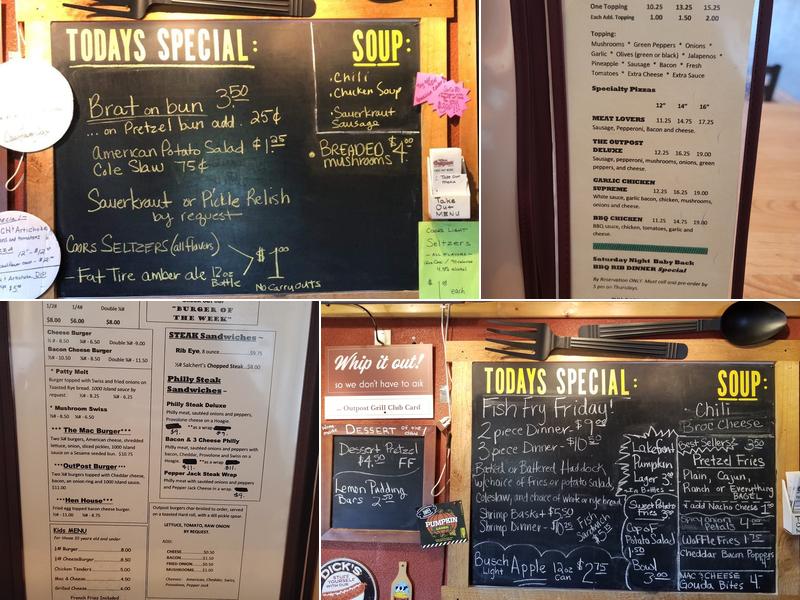 TODAYS SPECIAL:
SOUP:
• Chili
• Chicken Soup
• Sauerkraut
Sausage
Brat on bun 3.50
... on Pretzel bun add. 25¢
American Potato Salad $1.25
Cole Slaw 75¢
• BREADED $4.00
mushrooms
Sauerkraut or Pickle Relish
by request
COORS SELTZERS (all flavors)
$1.00
– Fat Tire amber ale 12oz
Bottle
No Carry outs
TAKE
OUT
MENU
COORS LIGHT
Seltzers
- ALL FLAVORS -
each
One Topping 10.25 13.25 15.25
Each Add. Topping 1.00 1.50 2.00
Topping:
Mushrooms * Green Peppers * Onions *
Garlic * Olives (green or black) * Jalapenos *
Pineapple * Sausage * Bacon * Fresh
Tomatoes * Extra Cheese * Extra Sauce
Specialty Pizzas
12" 14" 16"
MEAT LOVERS 11.25 14.75 17.25
Sausage, Pepperoni, Bacon and cheese.
THE OUTPOST
DELUXE 12.25 16.25 19.00
Sausage, pepperoni, mushrooms, onions, green
peppers, and cheese.
GARLIC CHICKEN
SUPREME 12.25 16.25 19.00
White sauce, garlic bacon, chicken, mushrooms,
onions and cheese.
BBQ CHICKEN 11.25 14.75 19.00
BBQ sauce, chicken, tomatoes, garlic and
cheese.
Saturday Night Baby Back
BBQ RIB DINNER Special
By Reservation ONLY. Must call and pre-order by
5 pm on Thursdays.
1/2# 1/4# Double ½#
$6.00 $8.00
Cheese Burger
¼# - 6.50 Double ½# -9.00
Bacon Cheese Burger
Double ½# - 11.50
* Patty Melt
Burger topped with Swiss and fried onions on
Toasted Rye bread. 1000 Island sauce by
request. ½# - 8.25 ¼# - 6.25
* Mushroom Swiss
½# -8.50 ¼# - 6.50
*** The Mac Burger***
Two ¼# burgers, American cheese, shredded
lettuce, onion, sliced pickles, 1000 Island
sauce on a Sesame seeded bun. $10.75
***OutPost Burger ***
Two ¼# burgers topped with Cheddar cheese,
bacon, an onion ring and 1000 Island sauce.
$11.00
***Hen House***
Fried egg topped bacon cheese burger.
Kids MENU
for those 10 years old and under
¼# Burger 6.00
¼# CheeseBurger 6.50
Chicken Tenders 5.00
Mac & Cheese 4.50
Grilled Cheese 6.00
French Fries Included
"BURGER OF
THE WEEK"
STEAK Sandwiches ~
Rib Eye, 8 ounce $9.75
½# Salchert's Chopped Steak $8.00
Philly Steak
Sandwiches~
Philly Steak Deluxe
Philly meat, sautéed onions and peppers,
Provolone cheese on a Hoagie.
**as a wrap
$9.
Bacon & 3 Cheese Philly
Philly meat, sautéed onions and peppers with
bacon, Cheddar, Provolone and Swiss on a
Hoagie. **as a wrap
$11. $11.
Pepper Jack Steak Wrap
Philly meat with sautéed onions and peppers
and Pepper Jack Cheese in a wrap.
$9.
Outpost burgers char-broiled to order, served
on toasted Hard roll, with a dill pickle spear.
LETTUCE, TOMATO, RAW ONION
BY REQUEST.
ADD:
CHEESE $0.50
BACON $1.50
FRIED ONION $0.50
MUSHROOMS $1.00
Cheeses: American, Cheddar, Swiss,
Provolone, Pepper Jack
Whip it out!
so we don't have to ask
Outpost Grill Club Card
DESSERT OF THE DAY!
Dessert Pretzel
$4.50 FF
Lemon Pudding
Bars 2.50
PUMPKIN
DICK'S
TODAYS SPECIAL:
SOUP:
Fish Fry Friday!
2 piece Dinner - $9.00
3 piece Dinner -
Baked or Battered Haddock
w/choice of fries or potato salad,
Coleslaw, and choice of white or rye bread
Shrimp Basket $5.50
Shrimp Dinner - $10.25
Fish n
Sandwich
Busch Apple 12oz $2.75
Light Can
Lakefront
Pumpkin
Lager
in Bottles
Sweet Potato
Fries
Cup of
Potato Salad
1.50
Bowl
3.00
- Chili
Broc Cheese
Best Sellers - 3.50
Pretzel Fries
Plain, Cajun,
Ranch or Everything
BAGEL
add Nacho Cheese
4.00
Waffle Fries 1.75
Cheddar Bacon Poppers
MAC & CHEESE
Gouda Bites 4.